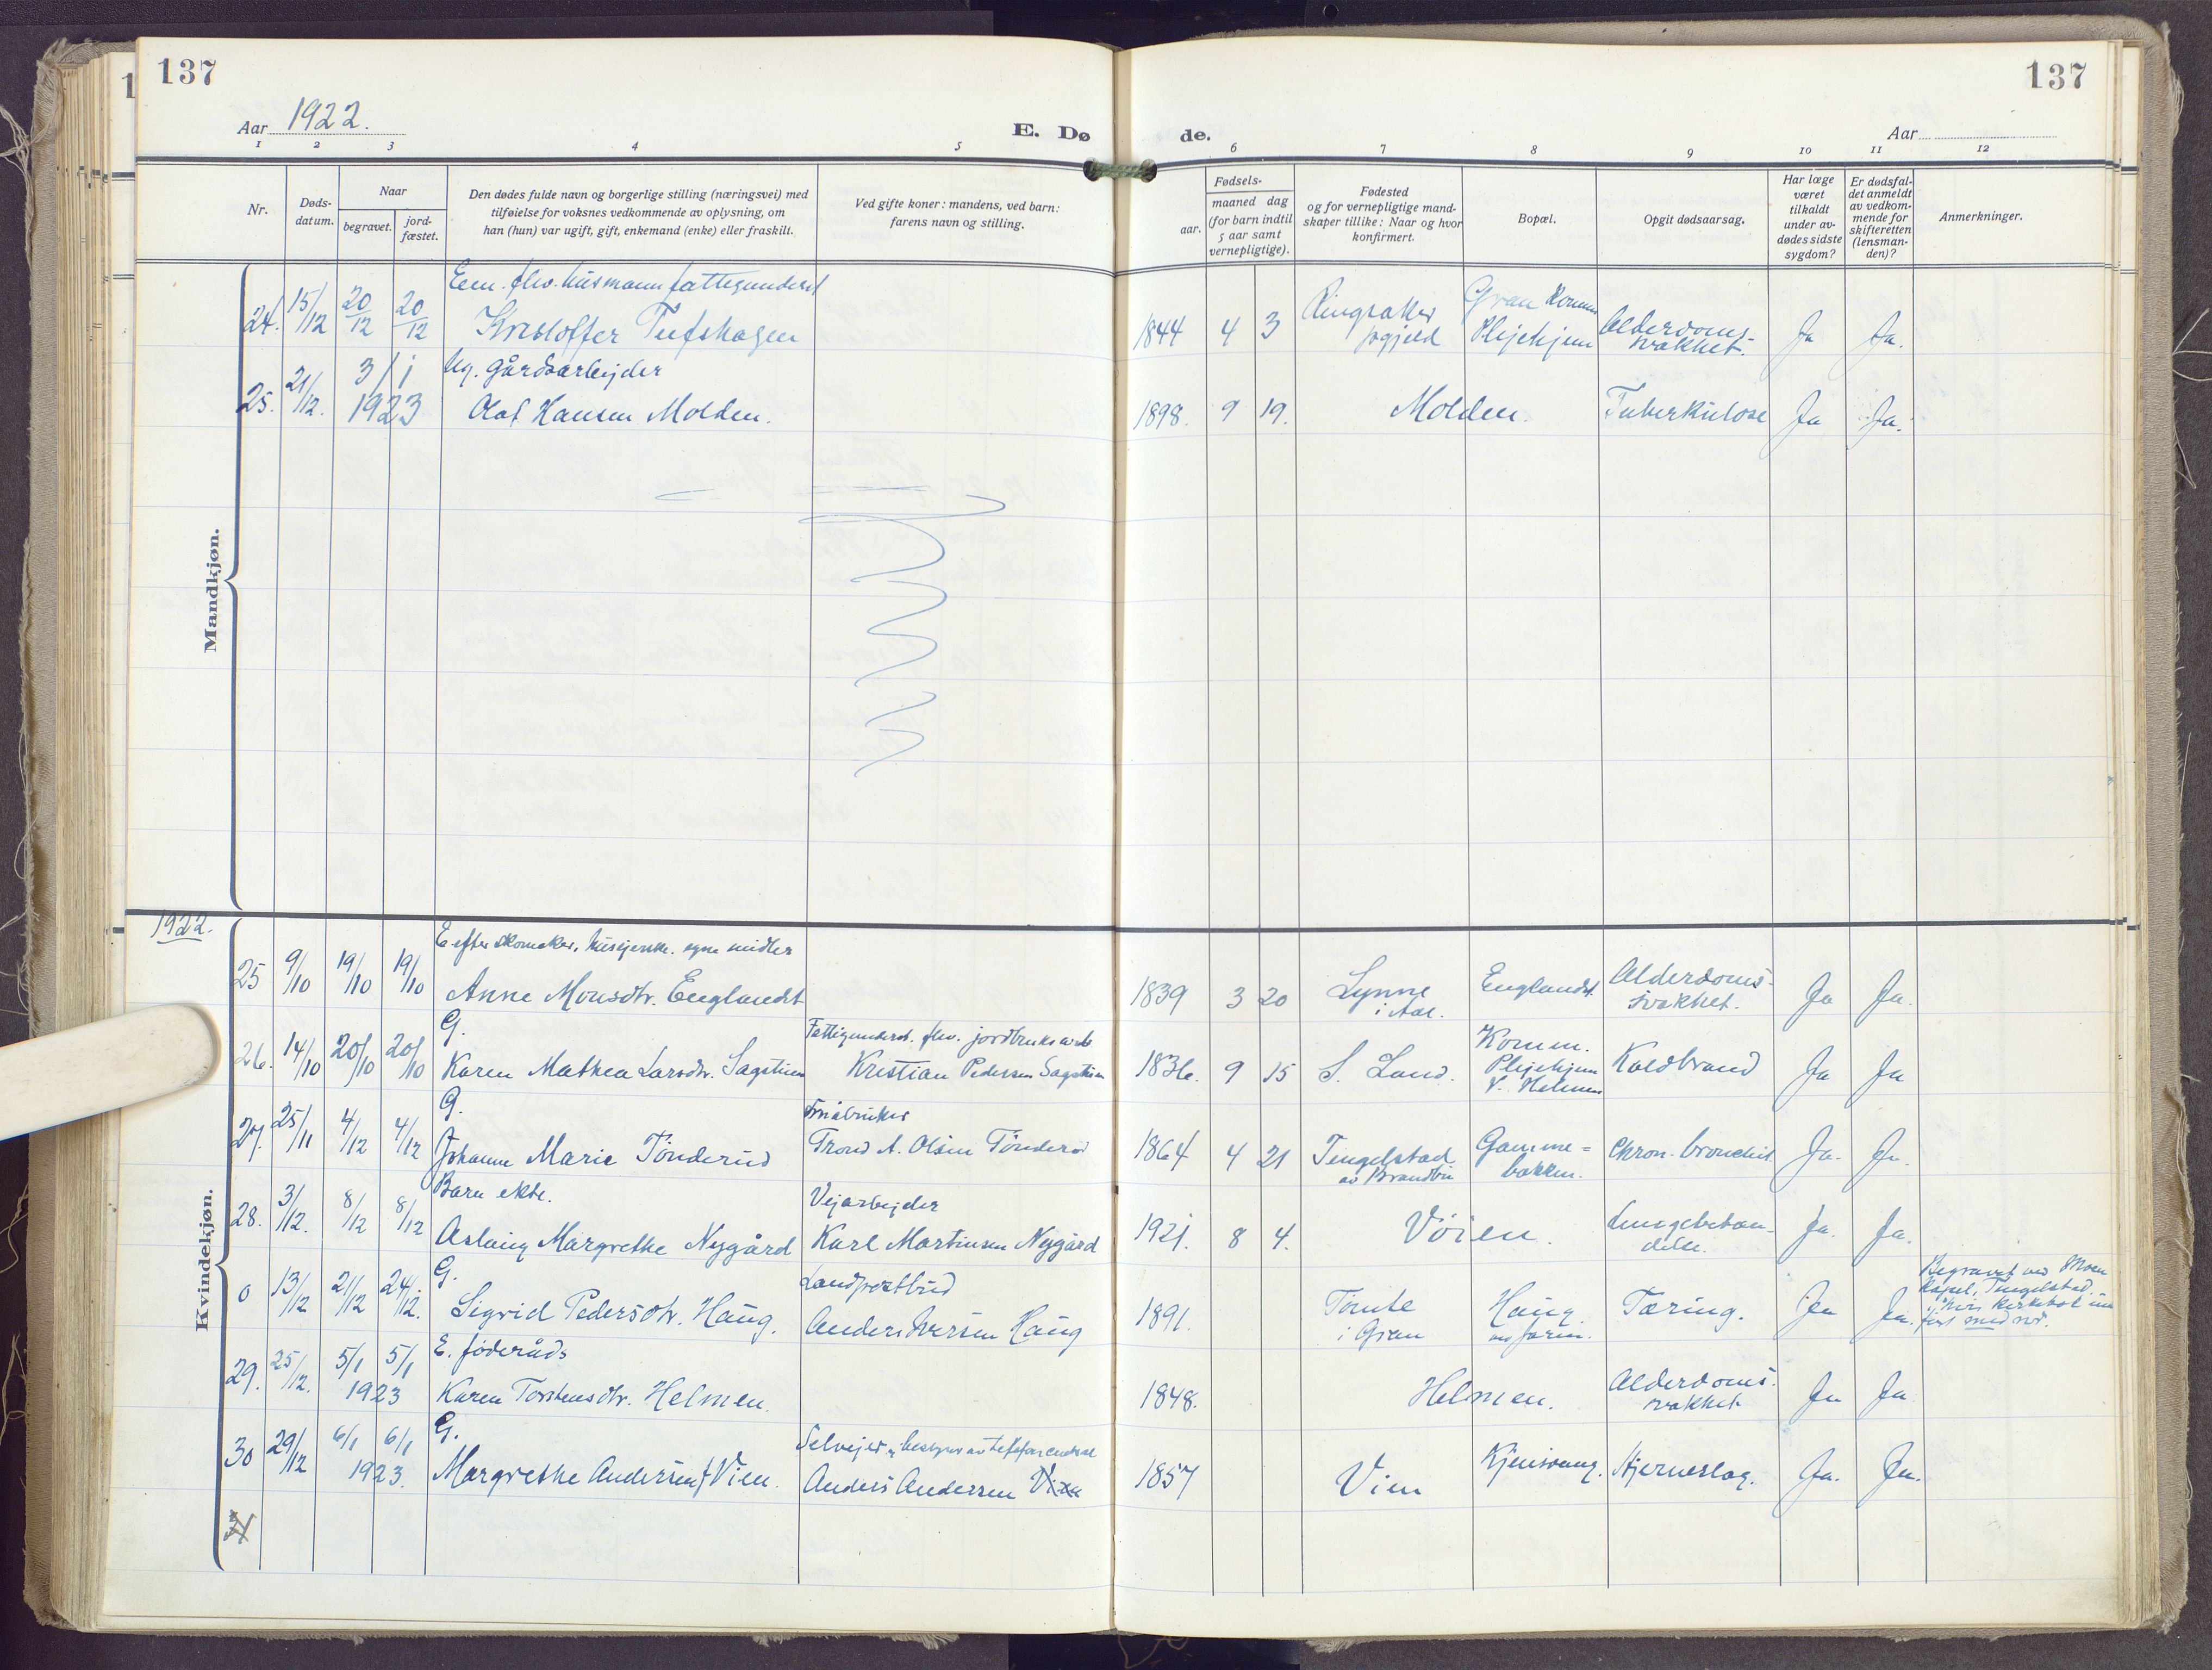 137
137
Aar 1922.
E. Dø de.
Aar
1 2 3 4 5 6 7 8 9 10 11 12
Nr.
Døds-
datum.
Naar
begravet.
jord-
fæstet.
Den dødes fulde navn og borgerlige stilling (næringsvei) med
tilføielse for voksnes vedkommende av oplysning, om
han (hun) var ugift, gift, enkemand (enke) eller fraskilt.
Ved gifte koner: mandens, ved barn:
farens navn og stilling.
Fødsels-
aar.
maaned dag
(for barn indtil
5 aar samt
vernepligtige).
Fødested
og for vernepligtige mand-
skaper tillike: Naar og hvor
konfirmert.
Bopæl.
Opgit dødsaarsag.
Har læge
været
tilkaldt
under av-
dødes sidste
sygdom?
Er dødsfal-
det anmeldt
av vedkom-
mende for
skifteretten
(lensman-
den)?
Anmerkninger.
Mandkjøn.
Eem. flv. husmann fattigunderst
24. 15/12 20/12 20/12 Kristoffer Tufshagen 1844 4 3 Ringsaker prgjeld Gran Komm Plejehjem Alderdoms-
svakhet. Ja Ja.
Ug. gårdsarbejder
25. 21/12. 3/1 1923 Olaf Hansen Molden. 1898. 9 19. Molden. Tuberkulose Ja Ja.
1922.
Kvindekjøn.
E. efter skomaker, husejerske. egne midler
25 9/10 19/10 19/10 Anne Monsdtr. Englandst 1839 3 20 Lynne i Aal. Englandst. Alderdoms-
svakhet. Ja Ja.
G. Fattigunderst. flv. jordbruksarb
26. 14/10 20/10 20/10 Karen Mathea Larsdtr. Sagstuen Kristian Pedersen Sagstuen 1836. 9 15 S. Land. Komm. Plejehjem V. Helmen Koldbrand Ja Ja
G. Småbruker
27. 25/11 4/12 4/12 Johanne Marie Tønderud Trond A. Olsen Tønderud 1864 4 21 Tengelstad av Brandbu Gamme=
bakken. Chron. bronchit. Ja. Ja.
Barn ekte. Vejarbejder
28. 3/12. 8/12 8/12 Aslaug Margrethe Nygård Karl Martinsen Nygård 1921. 8 4. Vøien. Lungebetæn-
delse. Ja. Ja.
G. Landpostbud
0 13/12 21/12 24/12. Sigrid Pedersdtr. Haug. Anders Iversen Haug 1891. Tømte i Gran Haug Tæring. Ja Ja.
Begravet ved Moen
Kapel, Tingelstad,
i hvis kirkebok inn
ført med nr.
E. føderåds
29. 25/12. 5/1 5/1 1923 Karen Torstensdtr. Helmen. 1848. Helmen. Alderdoms-
svakhet Ja Ja
G. Selvejer
30 29/12 6/1 6/1 1923. Margrethe Andersen Vien. Anders Andersen Vien 1857 Vien Kjensvang. Hjerneslag. Ja. Ja.